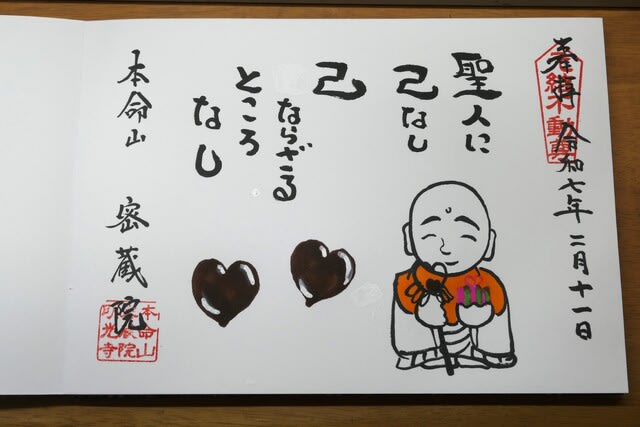 奉拝 令和七年二月十一日
聖人に
己なし
己
ならざる
ところ
なし
本命山 密蔵院